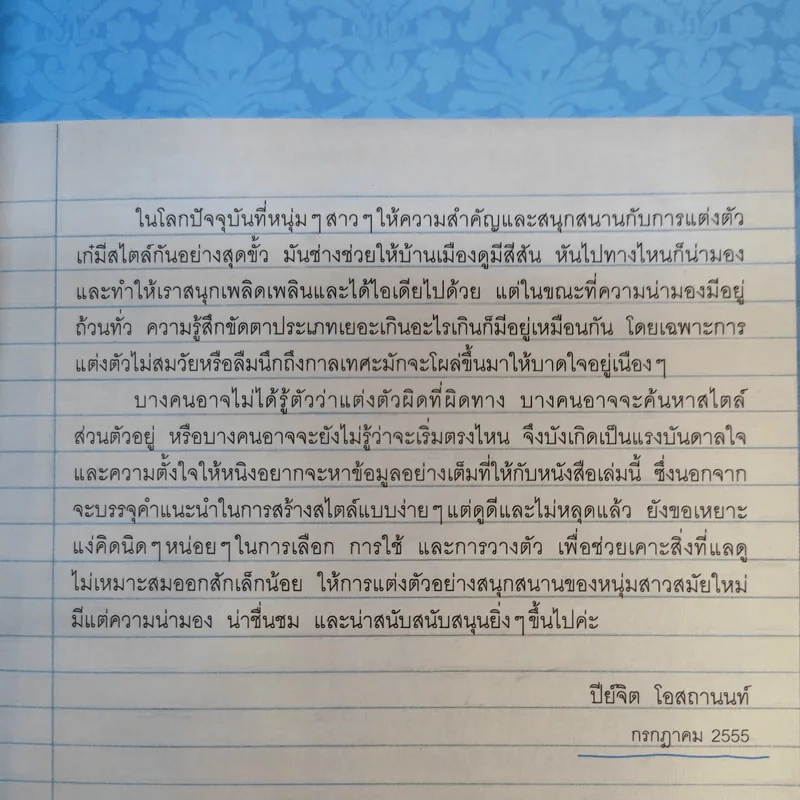 ในโลกปัจจุบันที่หนุ่มๆสาวๆให้ความสำคัญและสนุกสนานกับการแต่งตัว
เก๋มีสไตล์กันอย่างสุดขั้ว มันช่างช่วยให้บ้านเมืองดูมีสีสัน หันไปทางไหนก็น่ามอง
และทำให้เราสนุกเพลิดเพลินและได้ไอเดียไปด้วย แต่ในขณะที่ความน่ามองมีอยู่
ถ้วนทั่ว ความรู้สึกขัดตาประเภทเยอะเกินอะไรเกินก็มีอยู่เหมือนกัน โดยเฉพาะการ
แต่งตัวไม่สมวัยหรือลืมนึกถึงกาลเทศะมักจะโผล่ขึ้นมาให้บาดใจอยู่เนืองๆ
บางคนอาจไม่ได้รู้ตัวว่าแต่งตัวผิดที่ผิดทาง บางคนอาจจะค้นหาสไตล์
ส่วนตัวอยู่ หรือบางคนอาจจะยังไม่รู้ว่าจะเริ่มตรงไหน จึงบังเกิดเป็นแรงบันดาลใจ
และความตั้งใจให้หนิงอยากจะหาข้อมูลอย่างเต็มที่ให้กับหนังสือเล่มนี้ ซึ่งนอกจาก
จะบรรจุคำแนะนำในการสร้างสไตล์แบบง่ายๆแต่ดูดีและไม่หลุดแล้ว ยังขอเหยาะ
แง่คิดนิดๆหน่อยๆในการเลือก การใช้ และการวางตัว เพื่อช่วยเคาะสิ่งที่แลดู
ไม่เหมาะสมออกสักเล็กน้อย ให้การแต่งตัวอย่างสนุกสนานของหนุ่มสาวสมัยใหม่
มีแต่ความน่ามอง น่าชื่นชม และน่าสนับสนับสนุนยิ่งๆขึ้นไปค่ะ
ปีย์จิต โอสถานนท์
กรกฎาคม 2555